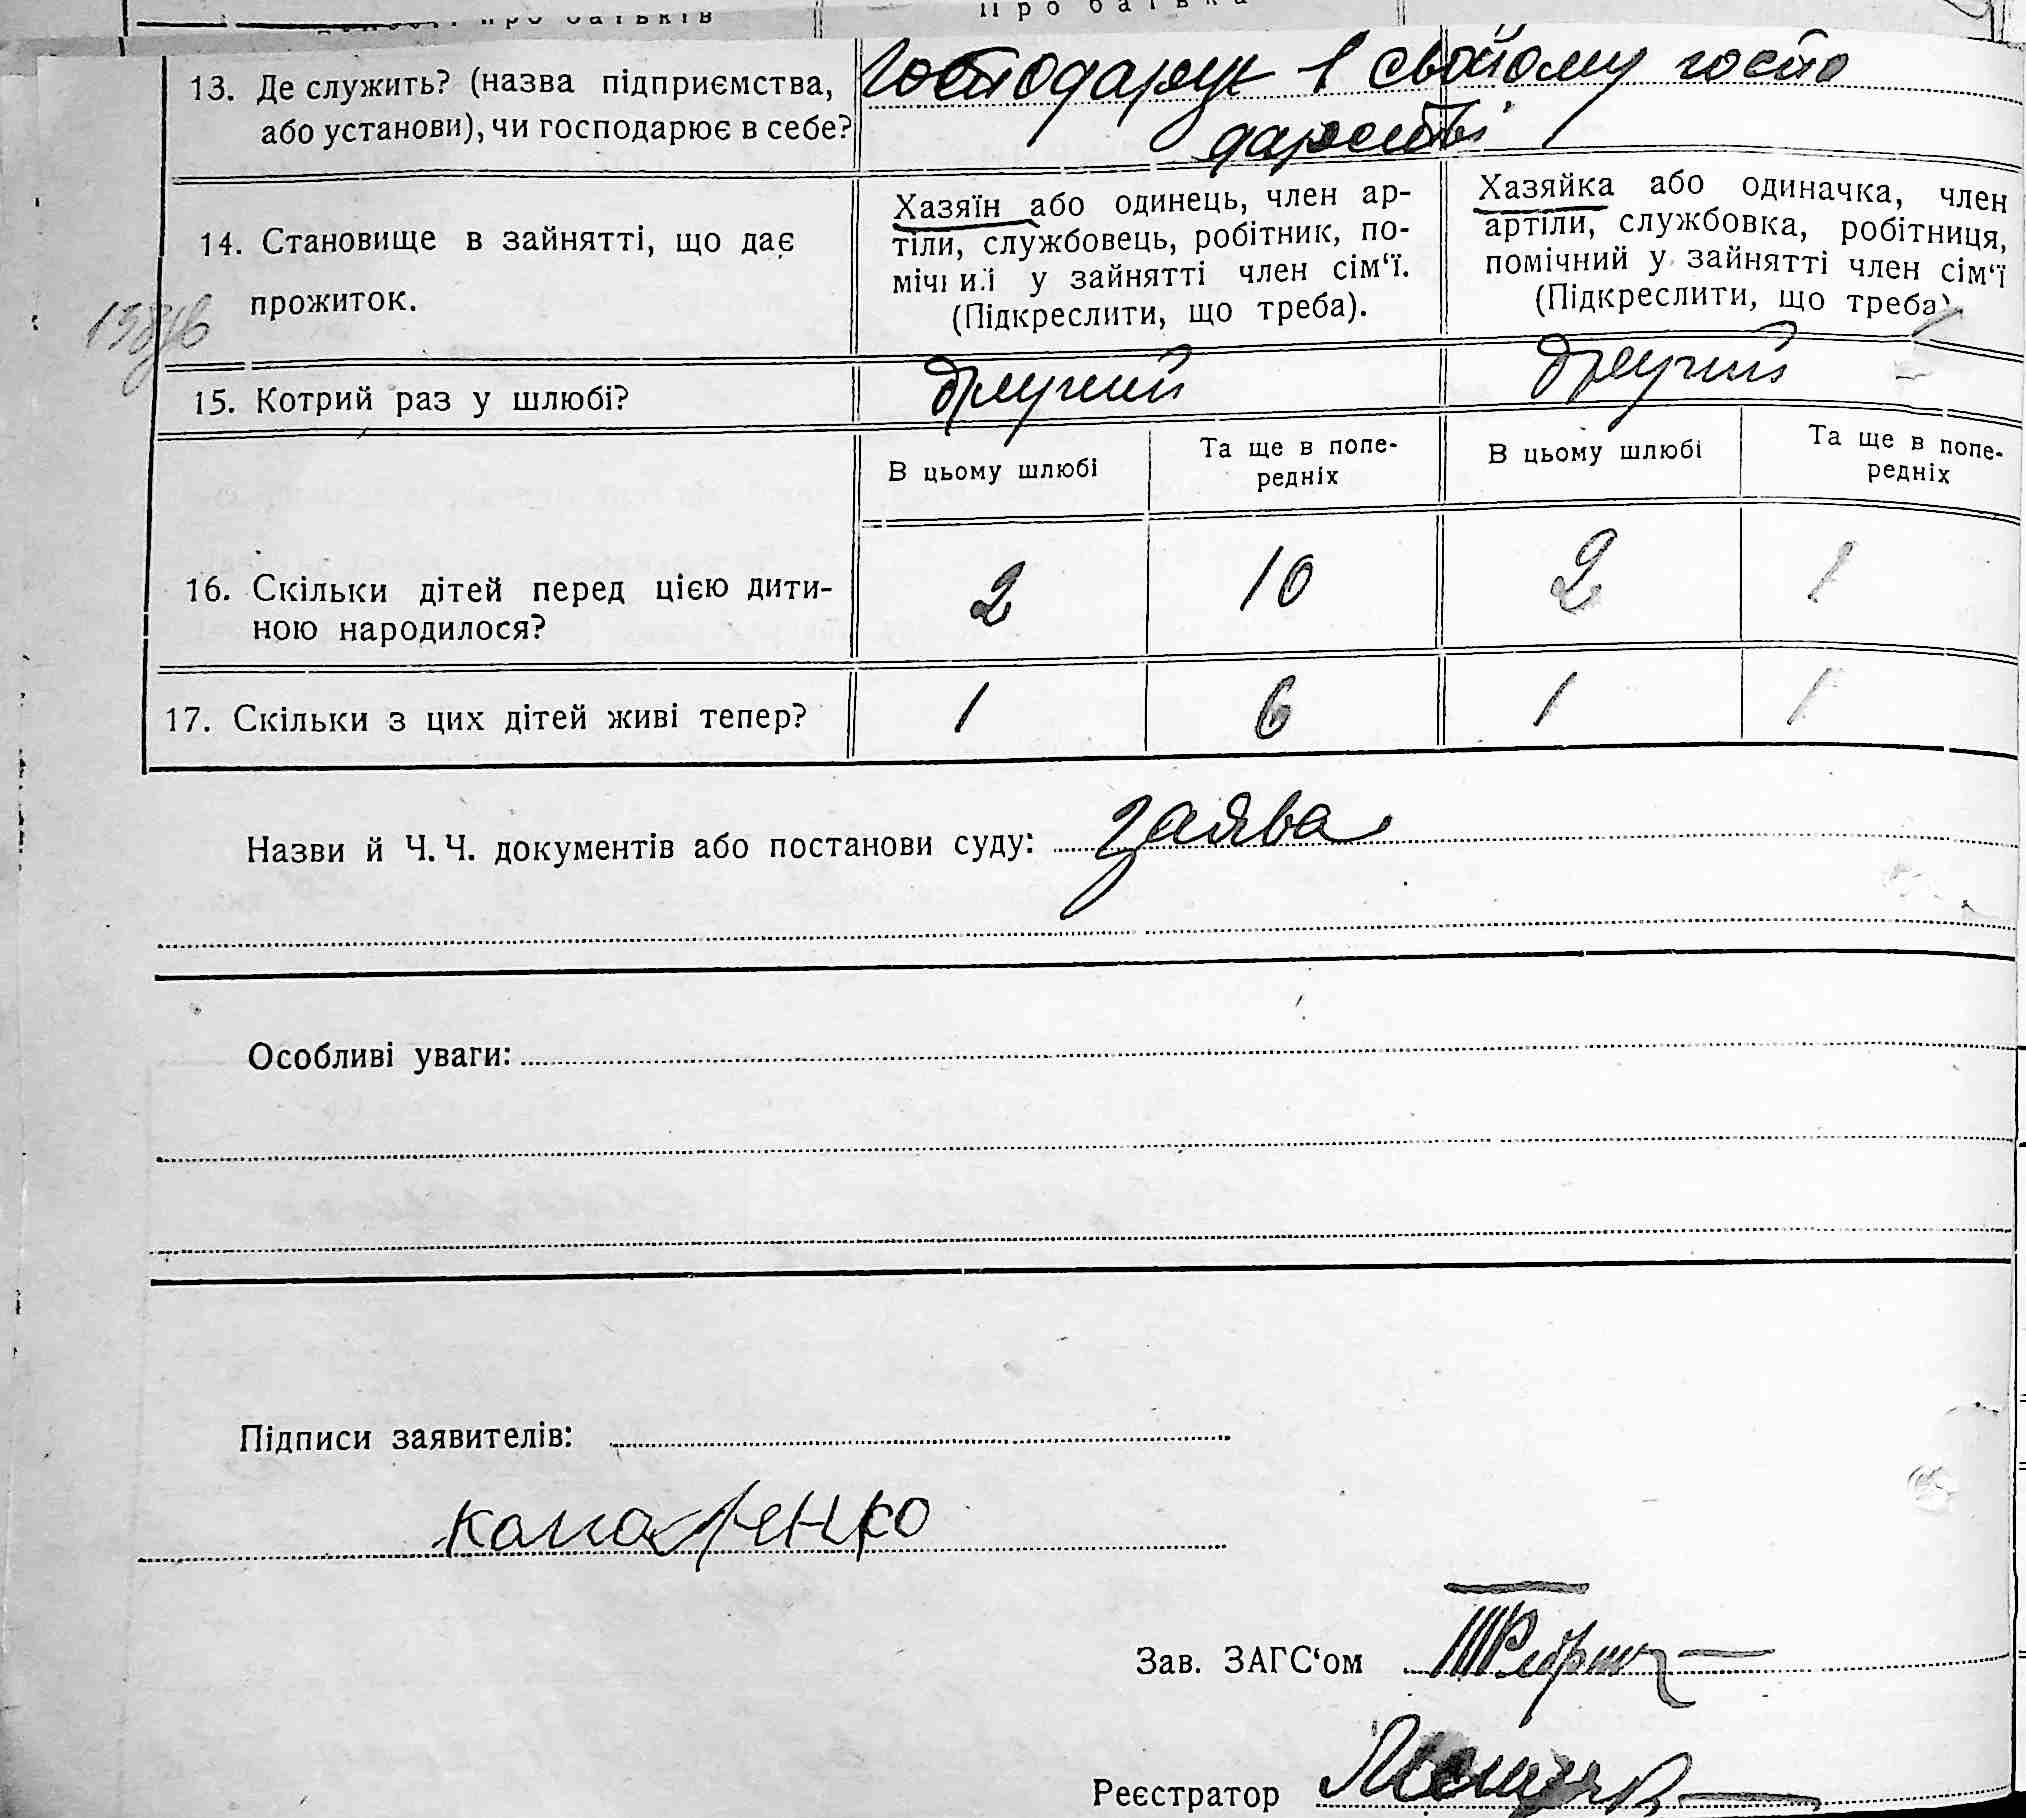 про батьків
Про батька
13. Де служить? (назва підприємства,
або установи), чи господарює в себе?
Господарує в свойому госпо
дарстві
14. Становище в зайнятті, що дає
прожиток.
Хазяїн або одинець, член ар-
тіли, службовець, робітник, по-
мічний у зайнятті член сім‘ї.
(Підкреслити, що треба).
Хазяйка або одиначка, член
артіли, службовка, робітниця,
помічний у зайнятті член сім‘ї
(Підкреслити, що треба)
15. Котрий раз у шлюбі?
другий
другий
В цьому шлюбі
Та ще в попе-
редніх
В цьому шлюбі
Та ще в попе-
редніх
16. Скільки дітей перед цією дити-
ною народилося?
2 10 2 1
17. Скільки з цих дітей живі тепер?
1 6 1 1
Назви й Ч. Ч. документів або постанови суду: заява
Особливі уваги:
Підписи заявителів:
Зав. ЗАГС‘ом
Реєстратор